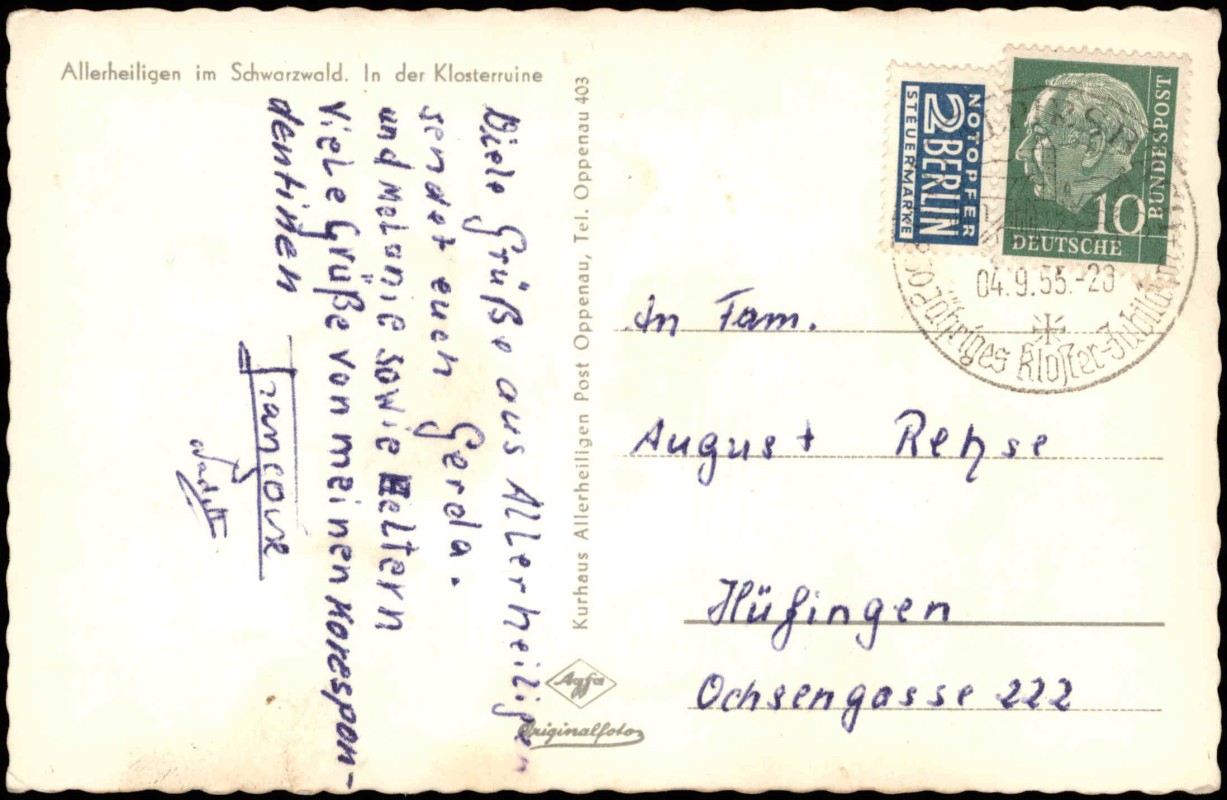 Allerheiligen im Schwarzwald. In der Klosterruine
Viele Grüße aus Allerheiligen
sendet euch Gerda.
und Melanie sowie Eeltern
Viele Grüße von meinen Korespon-
dentinen
Kurhaus Allerheiligen Post Oppenau, Tel. Oppenau 403
Agfa
Originalfoto
NOTOPFER
2 BERLIN
STEUERMARKE
BUNDESPOST
10
DEUTSCHE
04.9.55.-20
jähriges Kloster-Jubiläum
An Fam.
August Rehse
Hüfingen
Ochsengasse 222